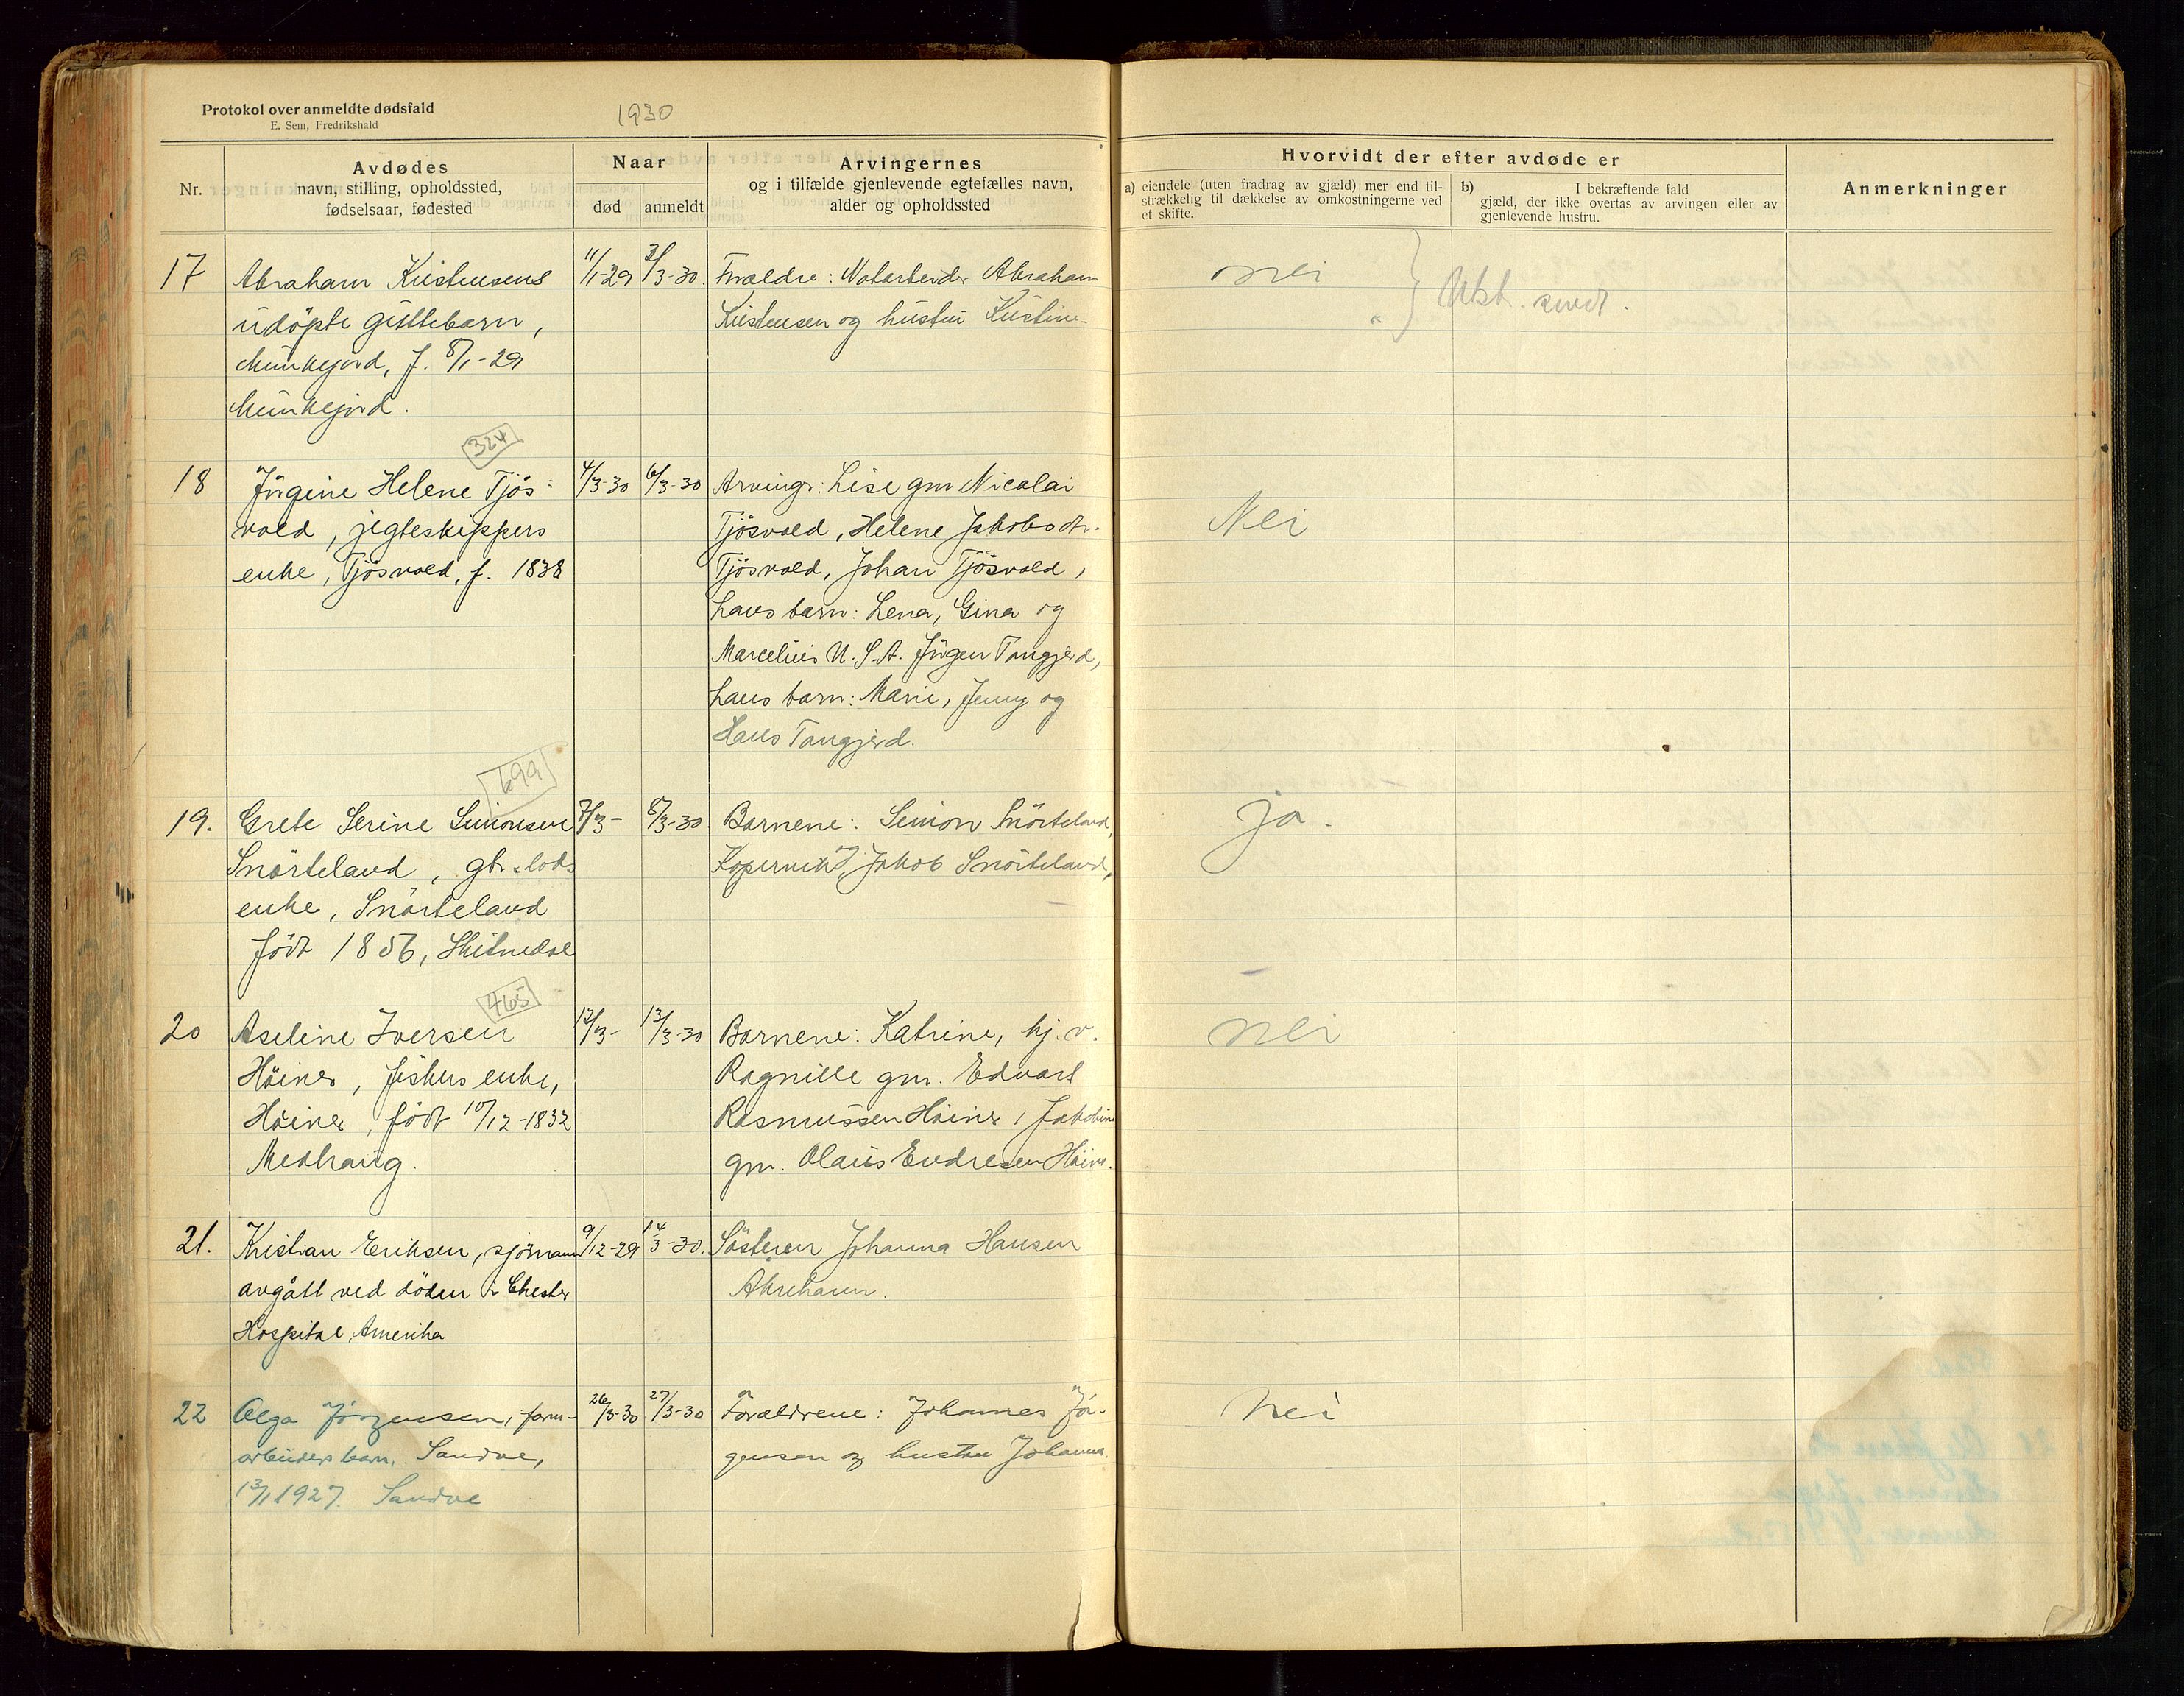 Protokol over anmeldte dødsfald
E. Sem, Fredrikshald
1930
Nr.
Avdødes
navn, stilling, opholdssted,
fødselsaar, fødested
Naar
død
anmeldt
Arvingernes
og i tilfælde gjenlevende egtefælles navn,
alder og opholdssted
Hvorvidt der efter avdøde er
a) eiendele (uten fradrag av gjæld) mer end til-
strækkelig til dækkelse av omkostningerne ved
et skifte.
b) I bekræftende fald
gjæld, der ikke overtas av arvingen eller av
gjenlevende hustru.
Anmerkninger
17
Abraham Kristensens
udöpte guttebarn,
Munkejord, f. 8/1-29
Munkejord.
11/1-29
3/3-30.
Foreldre: Notarbeider Abraham
Kristensen og hustru Kristine
nei
Utst. 
324
18
Jörgine Helene Tjös-
vold, jegteskippers
enke, Tjösvold, f. 1838
4/3-30
6/3-30
Arvingr: Lise gm Nicolai
Tjösvold, Helene Jakobsdtr.
Tjösvold, Johan Tjösvold,
hans barn: Lena, Gina og
Marcelius U.S.A. Jörgen Tangjerd,
hans barn: Marie, Jenny og
Hans Tangjerd.
Nei
699
19.
Grete Serine Simonsen
Snörteland, gbr.-lods
enke, Snörteland
födt 1856, Skitnedal
7/3-
8/3-30
Barnene: Simon Snörteland,
Kopervik, Jakob Snörteland,
ja.
465
20
Aseline Iversen
Höines, fiskers enke,
Höines, födt 10/12-1832
Medhaug.
12/3-
13/3-30
Barnene: Katrine, hj. v.
Ragnille gm. Edvart
Rasmussen Höines, Jakobine
gm. Olaus Endresen Höines.
nei
21.
Kristian Eriksen, sjömann
avgått ved döden i Chester
Hospital, Amerika
9/12-29
14/3-30.
Sösteren Johanna Hansen
Åkrehamn.
22
Olga Jörgensen, form-
arbeiders barn, Sandve,
13/1 1927. Sandve
26/3-30
27/3-30
Forældrene: Johannes Jör-
gensen og hustru Johanna.
nei